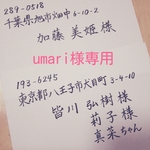 289-0518
千葉県旭市畑中6-10-2
加藤 美姫 様
umari様専用
193-6245
東京都八王子市犬目町3-4-10
皆川 弘樹 様
莉子 様
真菜ちゃん